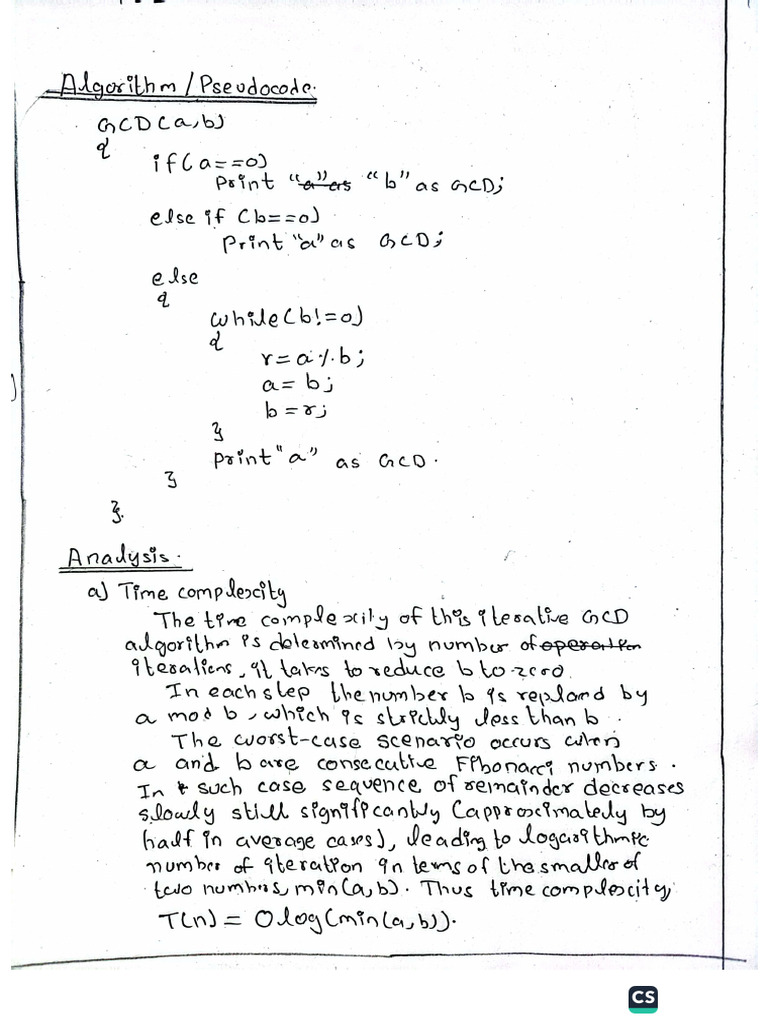 Algorithm / Pseudocode.
GCD(a,b)
{
if(a==0)
Print "a" as "b" as GCD;
else if (b==0)
Print "a" as GCD;
else
{
while(b!=0)
{
r=a%b;
a=b;
b=r;
}
print "a" as GCD.
}
}.
Analysis.
a) Time complexity
The time complexity of this iterative GCD
algorithm is determined by number of operation
iterations, it takes to reduce b to zero.
In each step the number b is replaced by
a mod b, which is strictly less than b.
The worst-case scenario occurs when
a and b are consecutive Fibonacci numbers.
In such case sequence of remainder decreases
slowly still significantly (approximately by
half in average cases), leading to logarithmic
number of iteration in terms of the smaller of
two numbers, min(a,b). Thus time complexity
T(n) = O log(min(a,b)).
CS